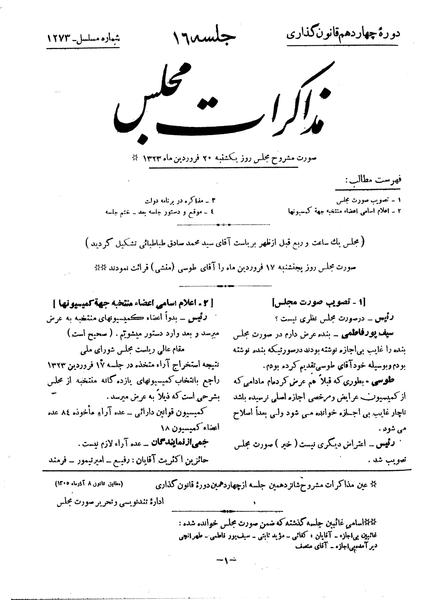 دورهٔ چهاردهم قانون گذاری
جلسه ۱۶
شماره مسلسل - ۱۲۷۳
مذاکرات مجلس
صورت مشروح مجلس روز یکشنبه ۲۰ فروردین ماه ۱۳۲۳ *
فهرست مطالب:
۱ - تصویب صورت مجلس
۲ - اعلام اسامی اعضاء منتخبه جهة کمیسیونها
۳ - مذاکره در برنامه دولت
۴ - موقع و دستور جلسه بعد - ختم جلسه
( مجلس یك ساعت و ربع قبل از ظهر بریاست آقای سید محمد صادق طباطبائی تشکیل گردید )
صورت مجلس روز پنجشنبه ۱۷ فروردین ماه را آقای طوسی ( منشی ) قرائت نمودند **
[ ۱ - تصویب صورت مجلس ]
رئیس - در صورت مجلس نظری نیست ؟
سیف پور فاطمی - بنده عرض دارم در صورت مجلس
بنده را غایب بی اجازه نوشته بودند در صورتیکه بنده نوشته
بودم و بوسیله خود آقای طوسی تقدیم کرده بودم.
طوسی - بطوری که قبلا هم عرض کرده ام مادامی که
از کمیسیون عرایض و مرخصی اجازه اصلی نرسیده باشد
ناچار غایب بی اجازه خوانده می شود ولی بعداً اصلاح
می شود .
رئیس - اعتراض دیگری نیست ( خیر ) صورت مجلس
تصویب شد .
[ ۲ - اعلام اسامی اعضاء منتخبه جهة کمیسیونها ]
رئیس - بدواً اعضاء کمیسیونهای منتخبه به عرض
میرسد و بعد وارد دستور میشویم . ( صحیح است )
مقام عالی ریاست مجلس شورای ملی
نتیجه استخراج آراء متخذه در جلسه ۱۷ فروردین ۱۳۲۳
راجع بانتخاب کمیسیونهای یازده گانه منتخبه از مجلس
بشرحی است که ذیلا به عرض میرسد.
کمیسیون قوانین دارائی - عده آراء مأخوذه ۸۴ عده
اعضاء کمیسیون ۱۸
جمعی از نمایندگان - عده آراء لازم نیست .
حائزین اکثریت آقایان : رفیع - امیرتیمور - فرمند
* عین مذاکرات مشروح شانزدهمین جلسه از چهاردهمین دورهٔ قانون گذاری
(مطابق قانون ۸ آذرماه ۱۳۰۵)
اداره تندنویسی و تحریر صورت مجلس
** اسامی غائبین جلسه گذشته که ضمن صورت مجلس خوانده شده :
غائبین بی اجازه - آقایان : کفائی - مؤید ثابتی - سیف پور فاطمی - طهرانچی
دیر آمده بی اجازه - آقای منصف
-۱-